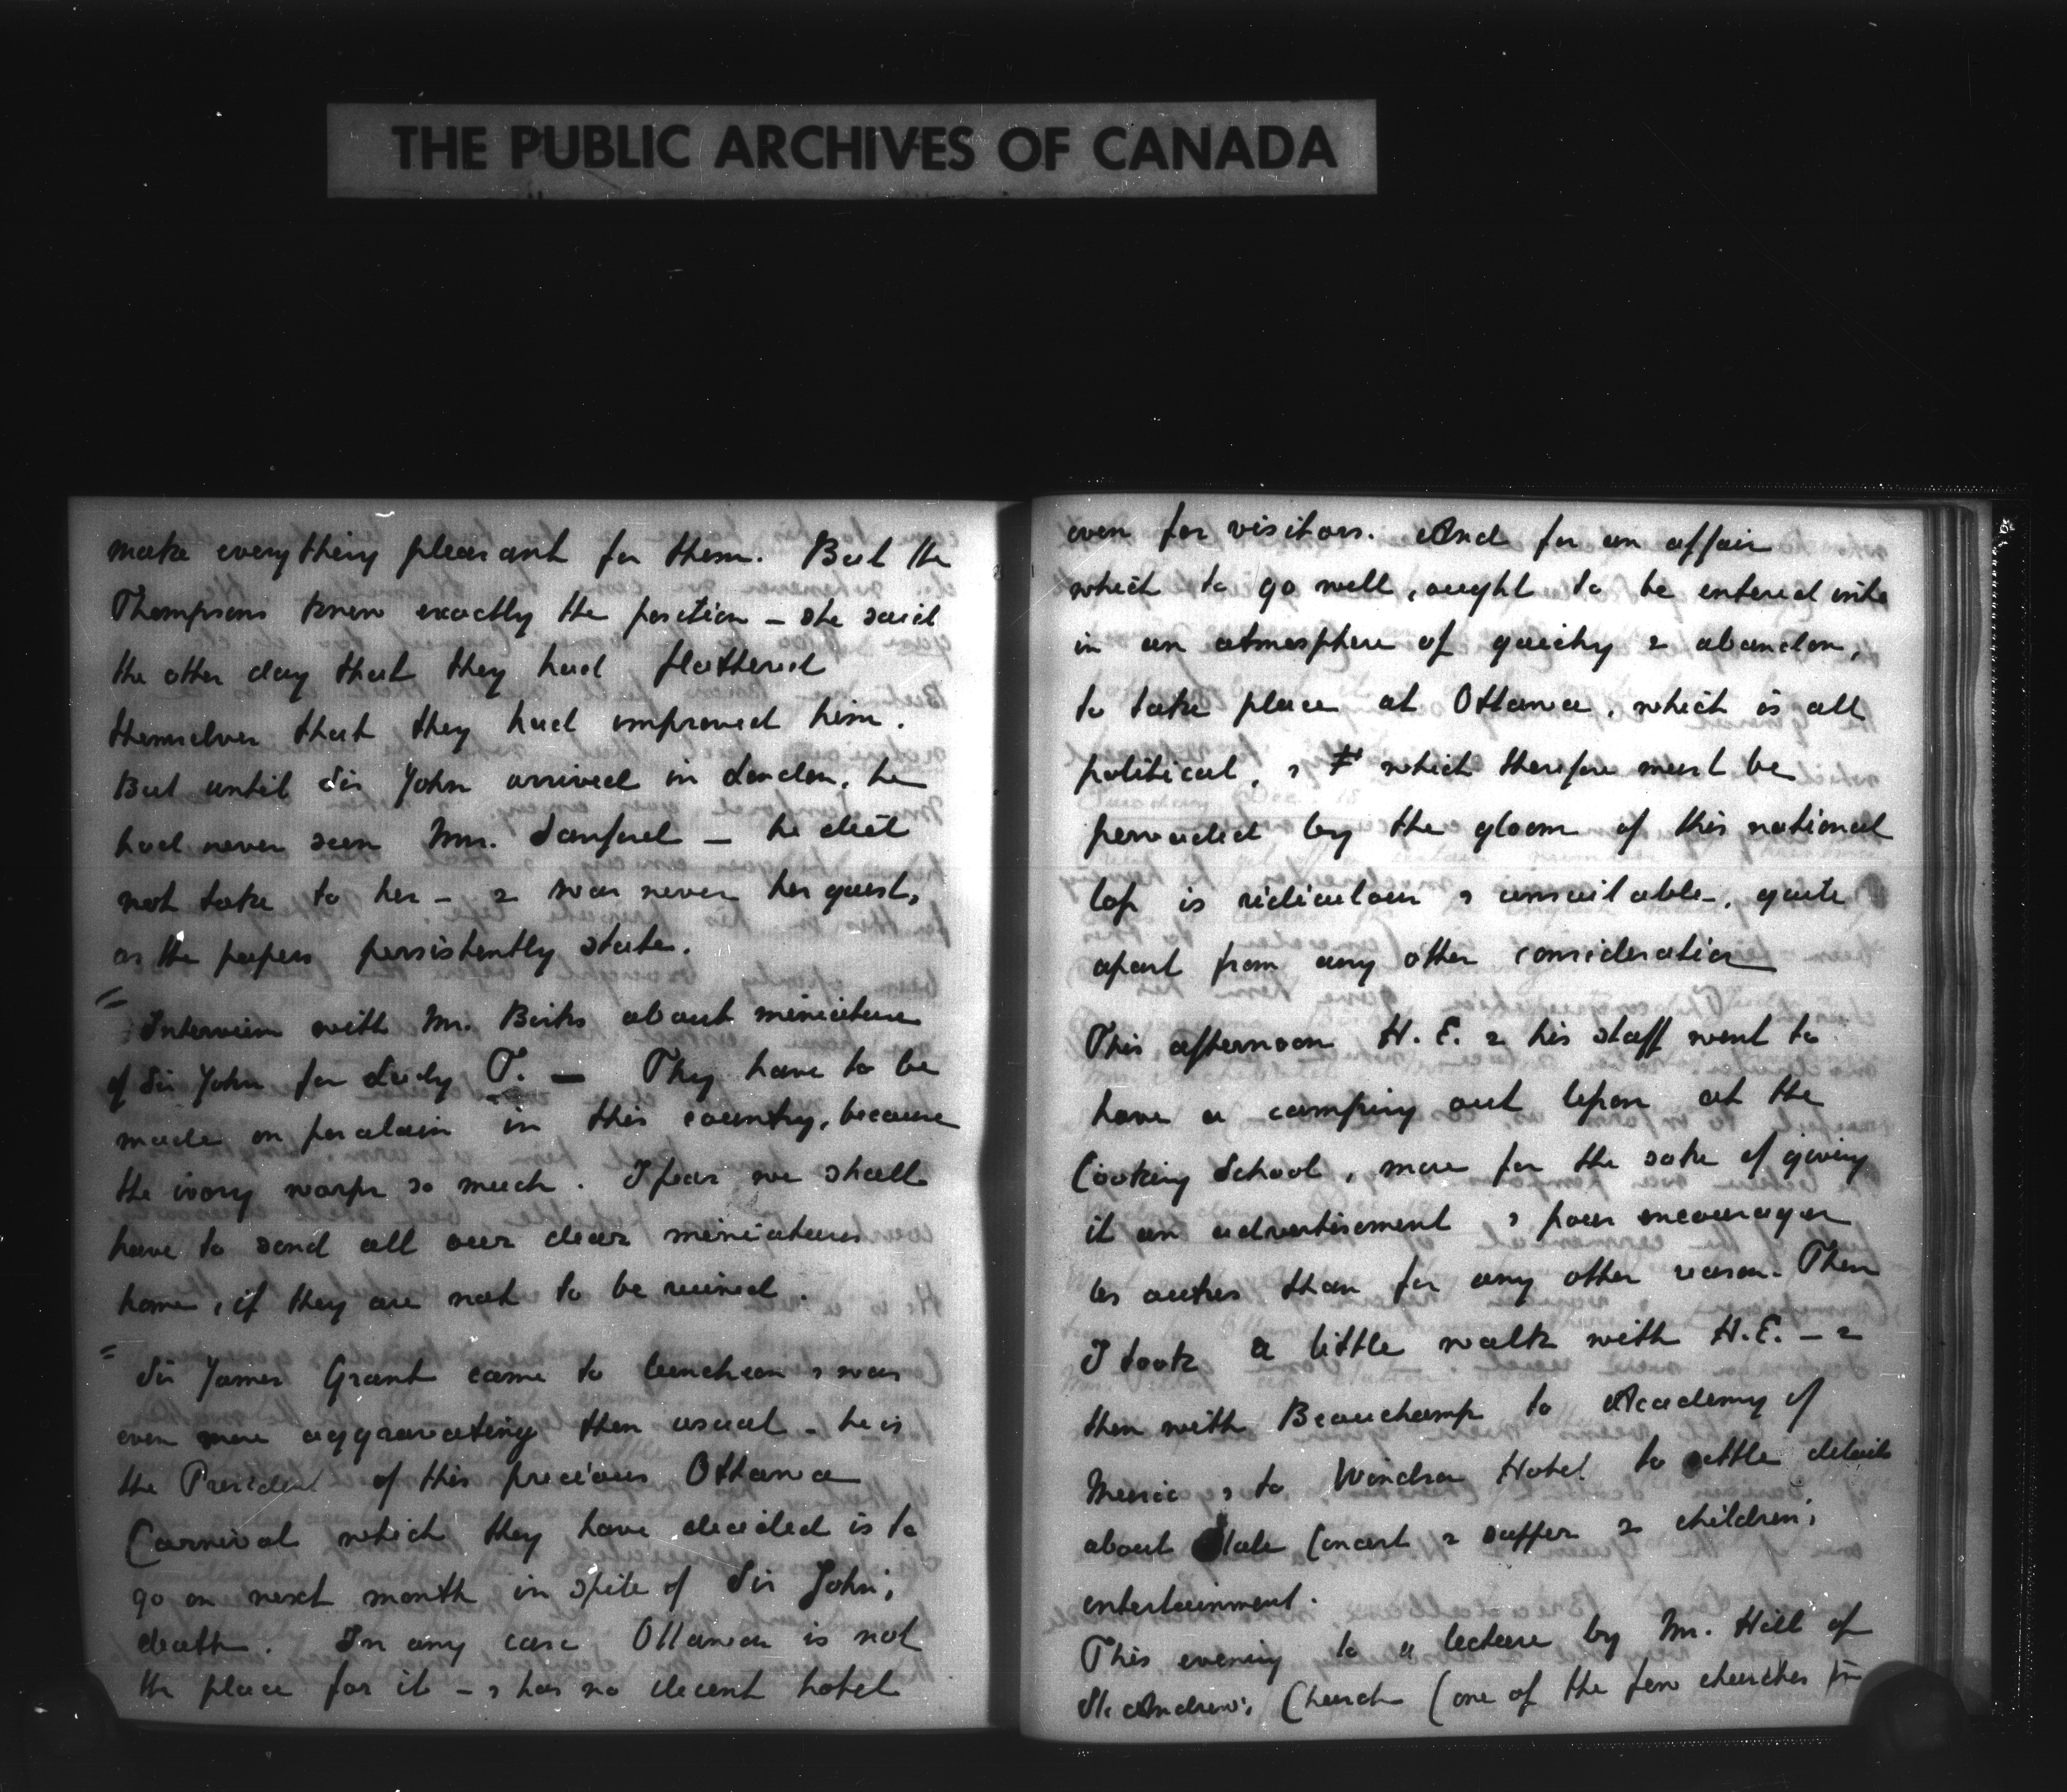 THE PUBLIC ARCHIVES OF CANADA
make everything pleasant for them. But the
Thompsons knew exactly the position – she said
the other day that they had flattered
themselves that they had improved him.
But until Sir John arrived in London, he
had never seen Mrs. Sanford – he did
not take to her – & was never her guest,
as the papers persistently state.
= Interview with Mr. Birks about miniature
of Sir John for Lady T. – They have to be
made on porcelain in this country, because
the ivory warps so much. I fear we shall
have to send all our dear miniatures
home, if they are not to be ruined.
= Sir James Grant came to luncheon & was
even more aggravating than usual – he is
the President of this precious Ottawa
Carnival which they have decided is to
go on next month in spite of Sir John's
death. In any case Ottawa is not
the place for it – & has no decent hotel
even for visitors. And for an affair
which to go well, ought to be entered into
in an atmosphere of gaiety & abandon,
to take place at Ottawa, which is all
political, & which therefore must be
pervaded by the gloom of this national
loss is ridiculous & unsuitable, quite
apart from any other consideration
This afternoon H.E. & his staff went to
have a camping out lesson at the
Cooking School, more for the sake of giving
it an advertisement & pour encourager
les autres than for any other reason. Then
I took a little walk with H.E. – &
then with Beauchamp to Academy of
Music & to Windsor Hotel to settle details
about State Concert & supper & children's
entertainment.
This evening to a lecture by Mr. Hill of
St. Andrew's Church (one of the few churches in